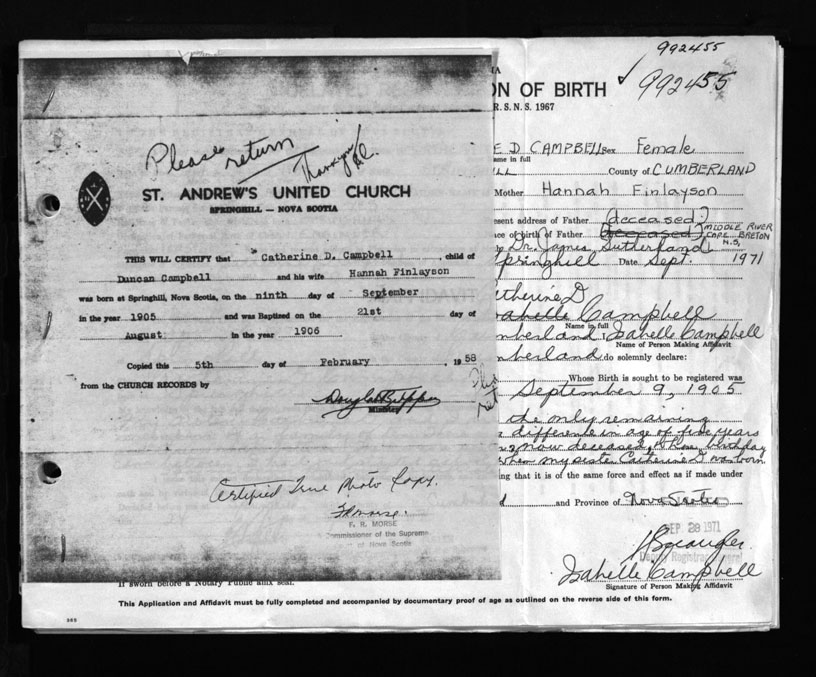 992455
992455
ON OF BIRTH
R.S.N.S. 1967
Please return
Thankyou
ST. ANDREW'S UNITED CHURCH
SPRINGHILL — NOVA SCOTIA
THIS WILL CERTIFY that Catherine D. Campbell, child of
Duncan Campbell and his wife Hannah Finlayson
was born at Springhill, Nova Scotia, on the ninth day of September
in the year 1905 and was Baptized on the 21st day of
August in the year 1906
Copied this 5th day of February, 1958
from the CHURCH RECORDS by
Minister
Certified True Photo Copy.
F. R. MORSE
A Commissioner of the Supreme
Court of Nova Scotia
E D CAMPBELL Sex Female
ame in full
LL County of CUMBERLAND
Mother Hannah Finlayson
esent address of Father (deceased)
ace of birth of Father (deceased) MIDDLE RIVER
CAPE BRETON
N.S,
Dr. James Sutherland
Springhill Date Sept. 1971
atherine D
sabelle Campbell
Name in full
mberland I, Isabelle Campbell
Name of Person Making Affidavit
mberland do solemnly declare:
Whose Birth is sought to be registered was
September 9, 1905
the only remaining
difference in age of five years
now deceased, whose birthday
when my sister Catherine D was born
ing that it is of the same force and effect as if made under
d and Province of Nova Scotia
SEP 28 1971
Deputy Registrar General
Isabelle Campbell
Signature of Person Making Affidavit
If sworn before a Notary Public affix seal.
This Application and Affidavit must be fully completed and accompanied by documentary proof of age as outlined on the reverse side of this form.